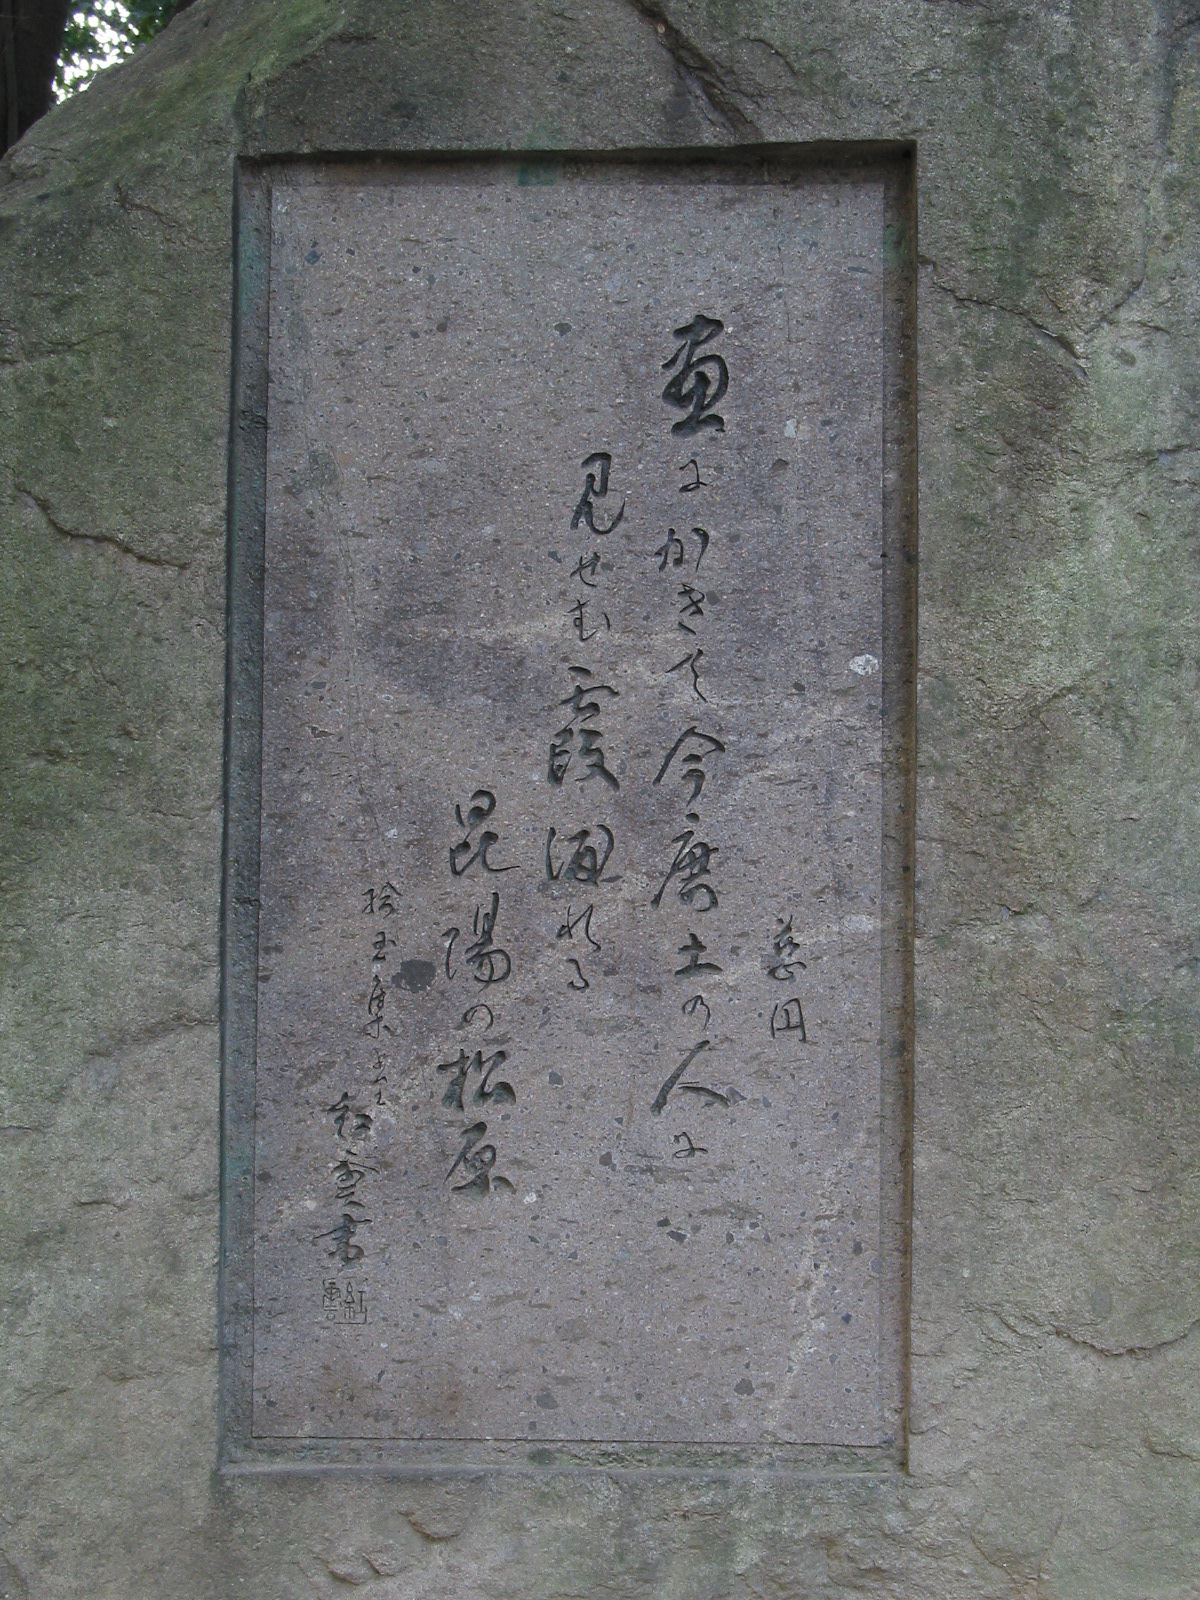 慈円
画にかきて今唐土の人に
見せむ霞渡れる
昆陽の松原
拾玉集より
紅雲書
紅雲